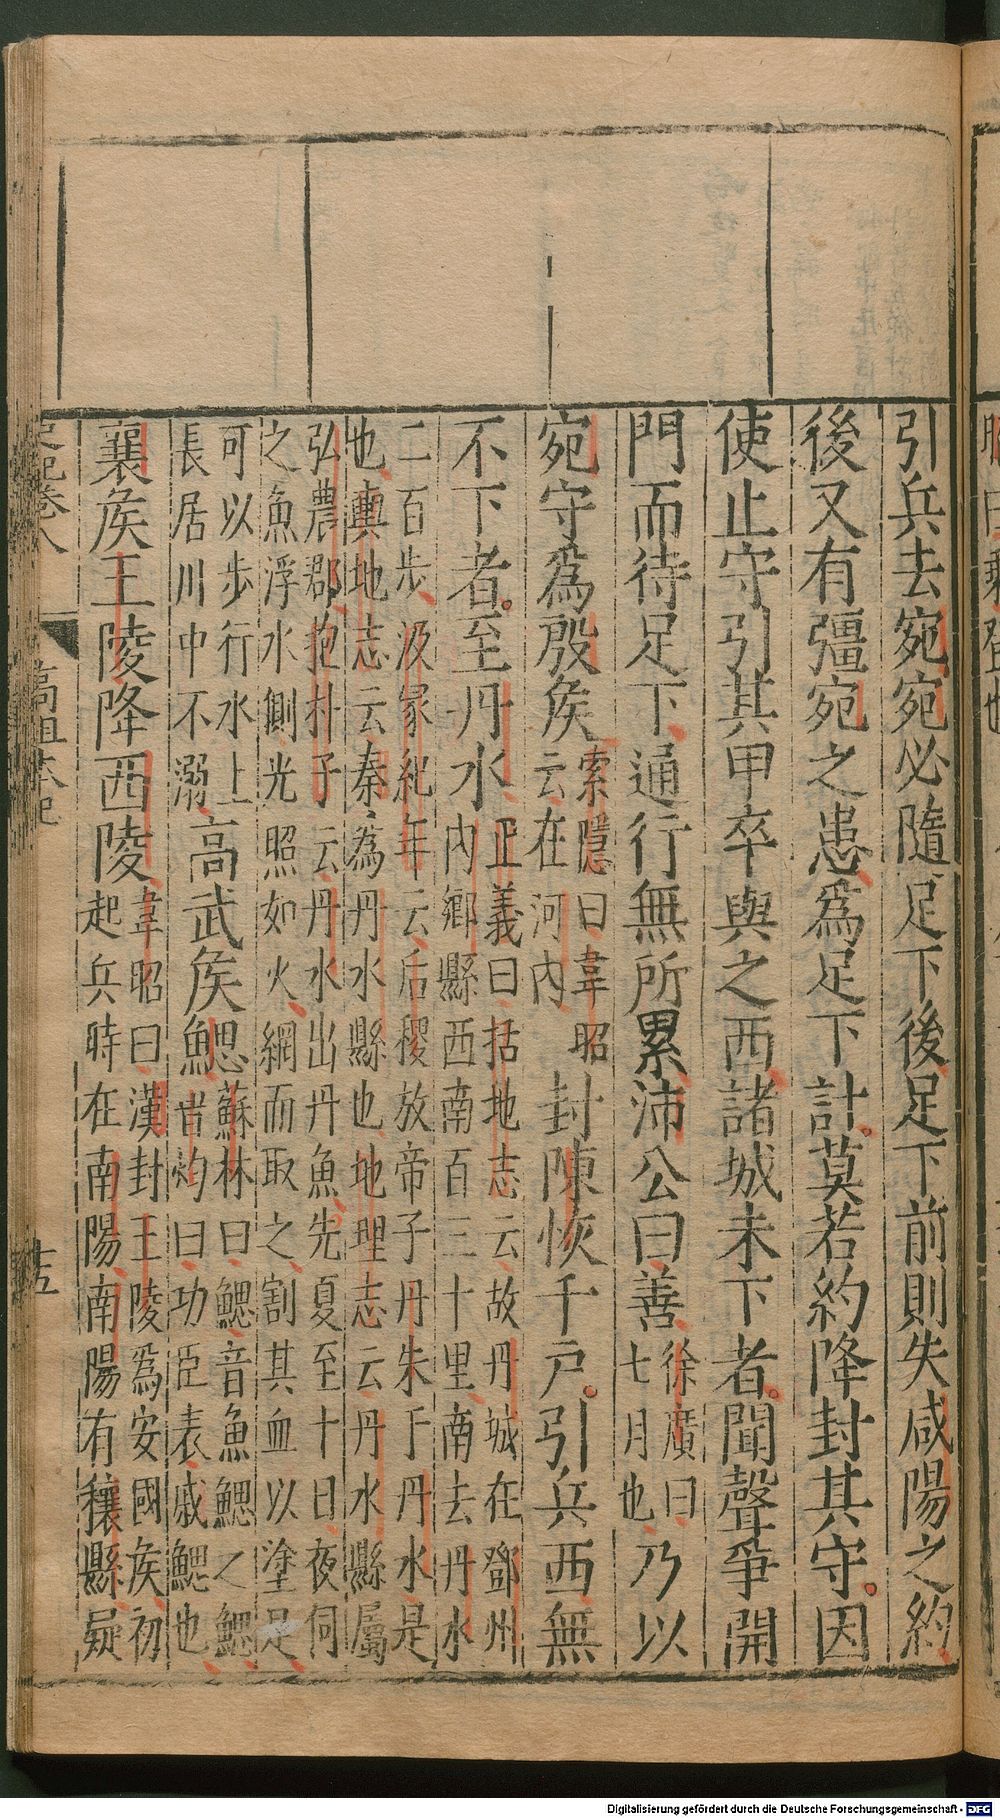 引兵去宛宛必隨足下後足下前則失咸陽之約
後又有彊宛之患爲足下計莫若約降封其守因
使止守引其甲卒與之西諸城未下者聞聲爭開
門而待足下通行無所累沛公曰善
徐廣曰
七月也
乃以
宛守爲殷侯
索隱曰韋昭
云在河內
封陳恢千户引兵西無
不下者至丹水
正義曰括地志云故丹城在鄧州
內鄉縣西南百三十里南去丹水
二百步汲冢紀年云后稷放帝子丹朱于丹水是
也輿地志云秦爲丹水縣也地理志云丹水縣屬
弘農郡抱朴子云丹水出丹魚先夏至十日夜伺
之魚浮水側光照如火網而取之割其血以塗足
可以步行水上
長居川中不溺
高武侯鰓
蘇林曰鰓音魚鰓之鰓
晉灼曰功臣表戚鰓也
襄侯王陵降西陵
韋昭曰漢封王陵爲安國侯初
起兵時在南陽南陽有穰縣疑
史記卷八
高祖本紀
十五
Digitalisierung gefördert durch die Deutsche Forschungsgemeinschaft - DFG